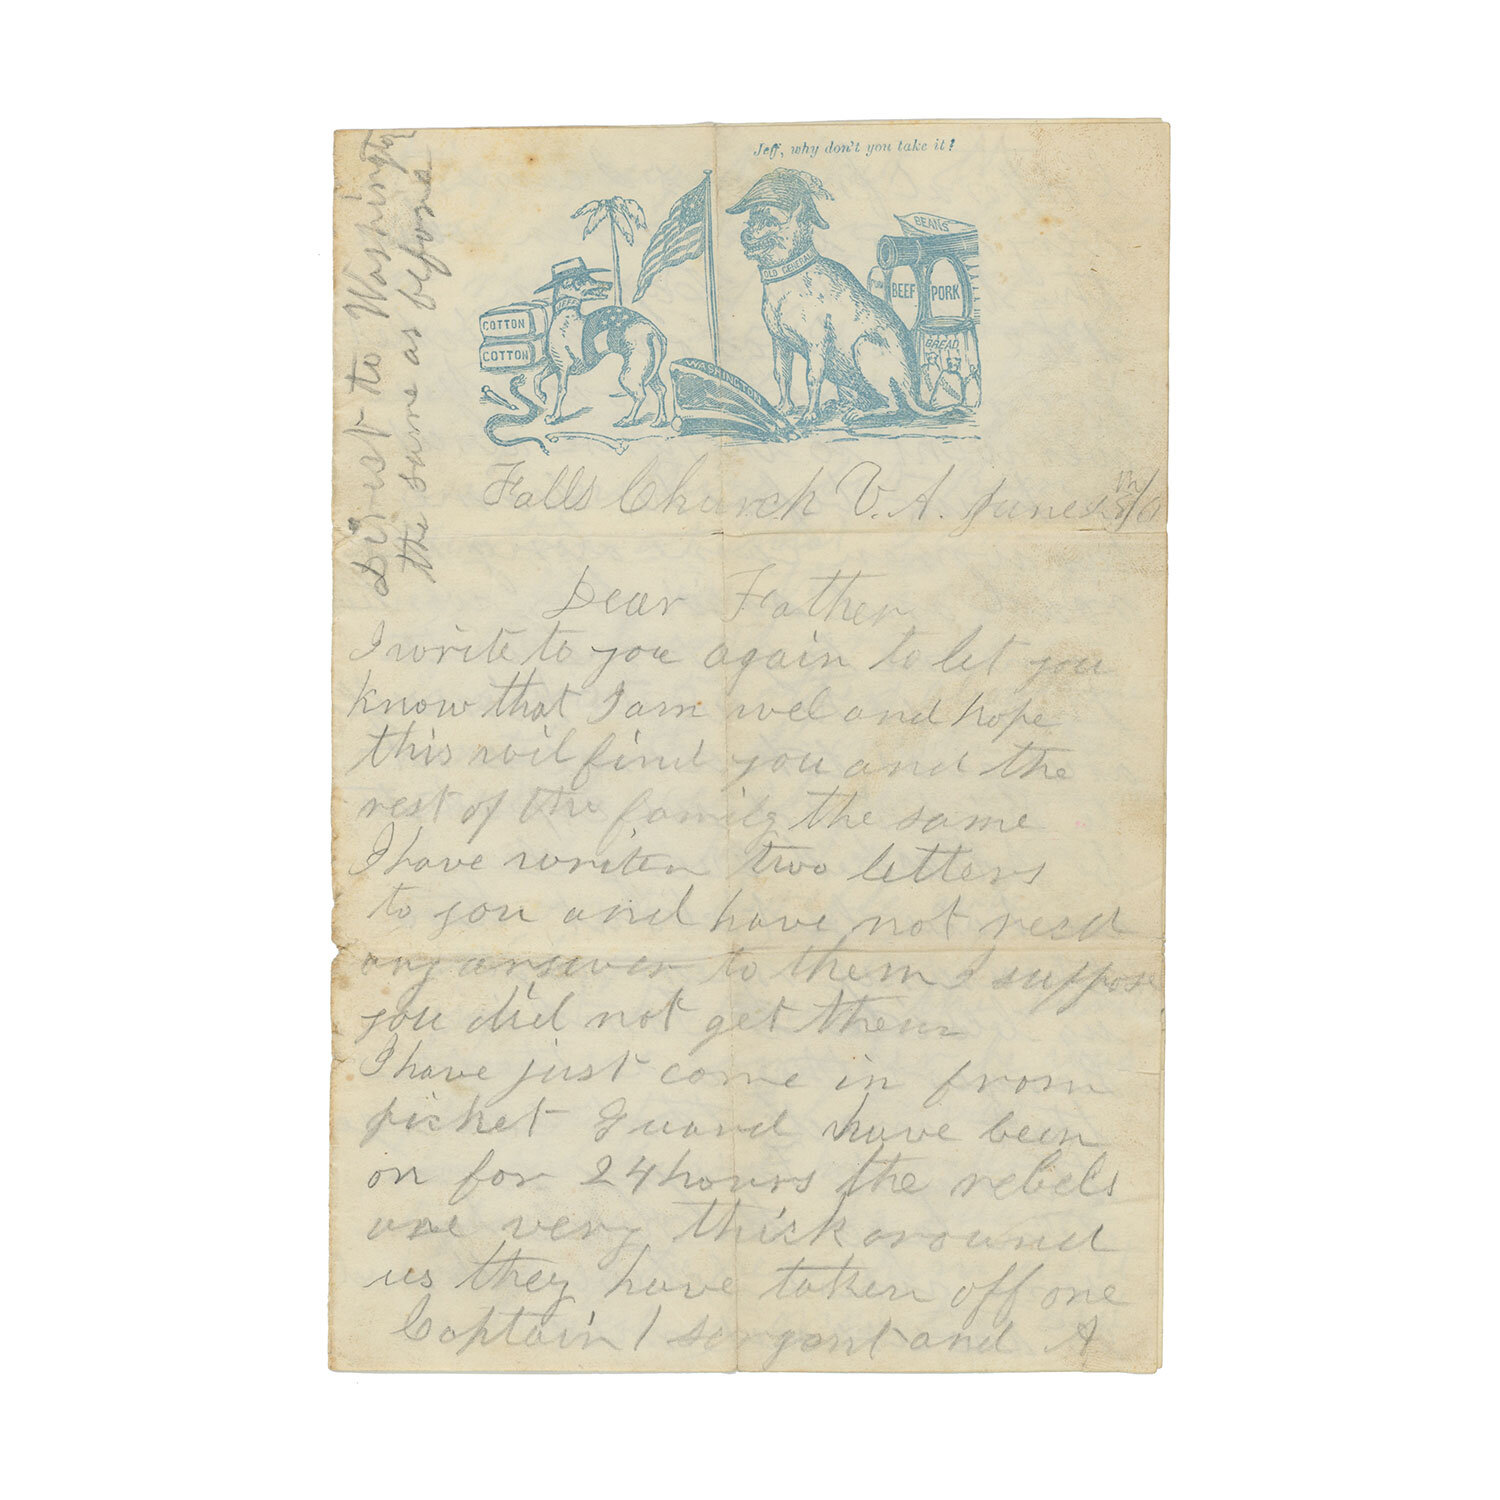 Direct to Washington
the same as before
Jeff, why don't you take it?
BEANS
OLD GENERAL
BEEF
PORK
BREAD
JEFF
COTTON
COTTON
WASHINGTON
Falls Church V.A. June
Dear Father
I write to you again to let you
know that I am wel and hope
this wil find you and the
rest of the family the same
I have writen two letters
to you and have not recd
any answer to them I suppose
you did not get them
I have just come in from
picket Guard have been
on for 24 hours the rebels
are very thick around
us they have taken off one
Captain 1 sergant and A